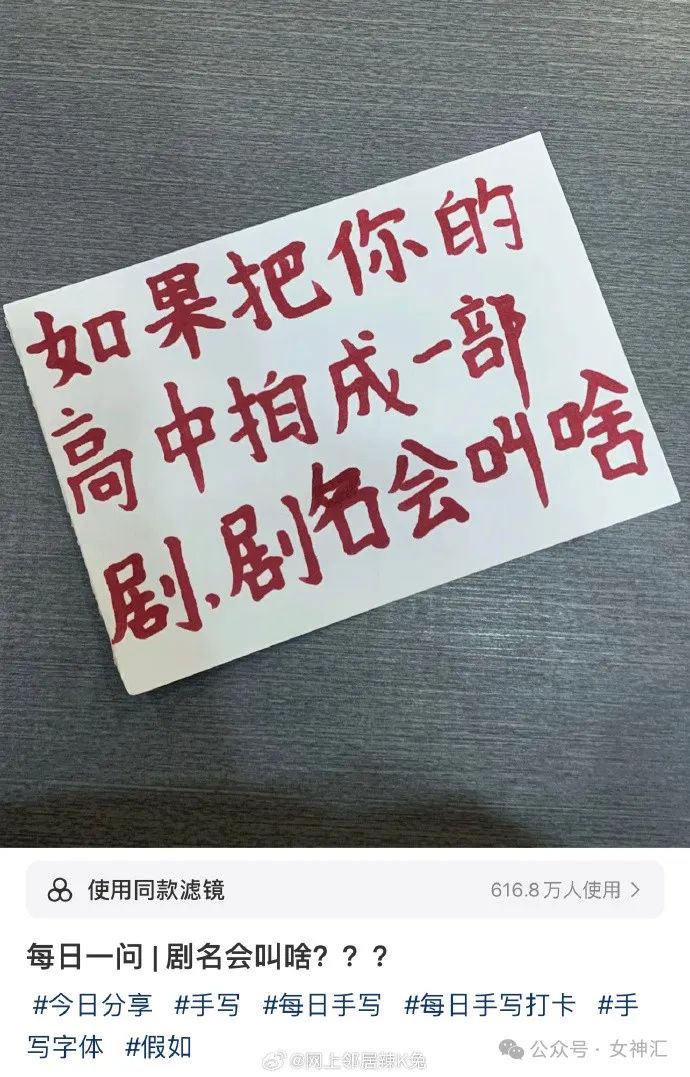 如果把你的
高中拍成一部
剧,剧名会叫啥
使用同款滤镜 616.8万人使用 >
每日一问 | 剧名会叫啥? ? ?
#今日分享 #手写 #每日手写 #每日手写打卡 #手
写字体 #假如
@网上邻居辣K兔
公众号 · 女神汇